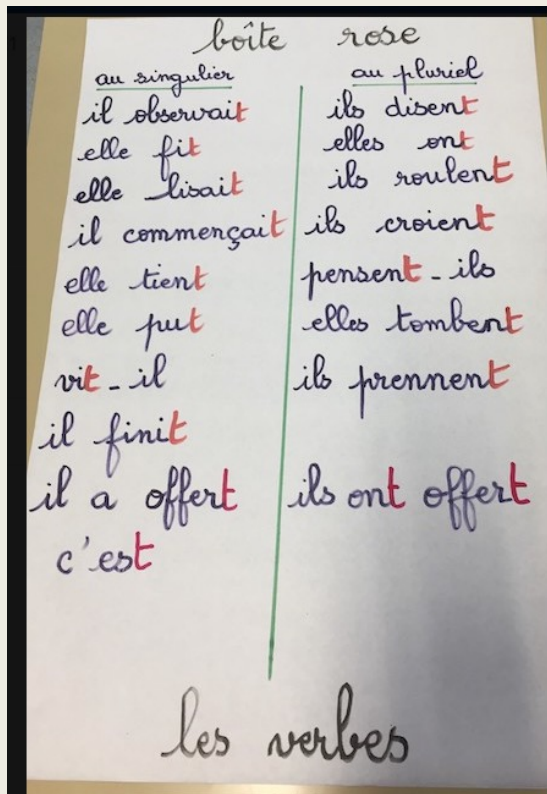 boîte rose
au singulier
il observait
elle fit
elle lisait
il commençait
elle tient
elle put
vit-il
il finit
il a offert
c'est
au pluriel
ils disent
elles ont
ils roulent
ils croient
pensent-ils
elles tombent
ils prennent
ils ont offert
les verbes